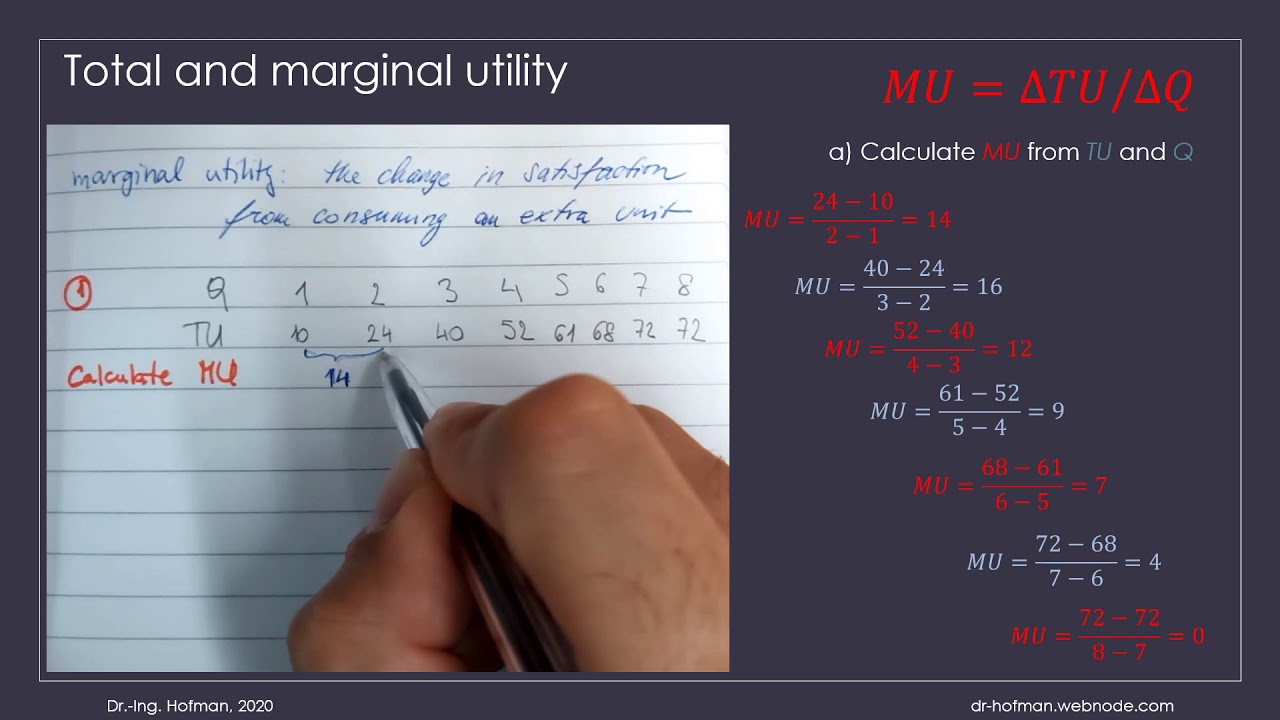 Total and marginal utility
marginal utility: the change in satisfaction
from consuming an extra unit
1 Q 1 2 3 4 5 6 7 8
TU 10 24 40 52 61 68 72 72
Calculate MU 14
MU = ΔTU/ΔQ
a) Calculate MU from TU and Q
MU = (24 − 10)/(2 − 1) = 14
MU = (40 − 24)/(3 − 2) = 16
MU = (52 − 40)/(4 − 3) = 12
MU = (61 − 52)/(5 − 4) = 9
MU = (68 − 61)/(6 − 5) = 7
MU = (72 − 68)/(7 − 6) = 4
MU = (72 − 72)/(8 − 7) = 0
Dr.-Ing. Hofman, 2020
dr-hofman.webnode.com